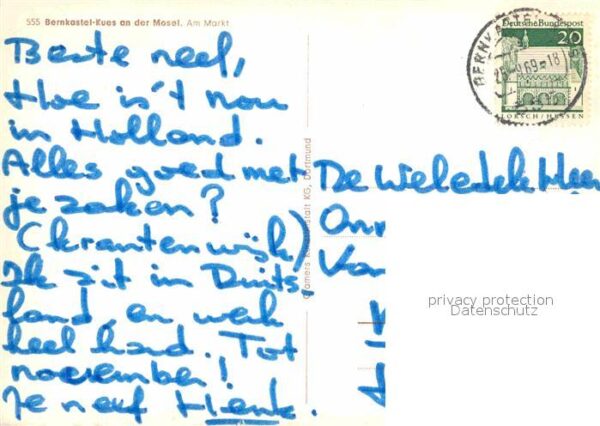 555 Bernkastel-Kues an der Mosel. Am Markt
Beste neef,
Hoe is't nou
in Holland.
Alles goed met
je zaken?
(krantenwijk)
Ik zit in Duits,
land, en werk
heel hard. Tot
november!
Je neef Henk.
Cramers Kunstanstalt KG, Dortmund
Deutsche Bundespost
20
LORSCH/HESSEN
De Weledele Heer
privacy protection
Datenschutz